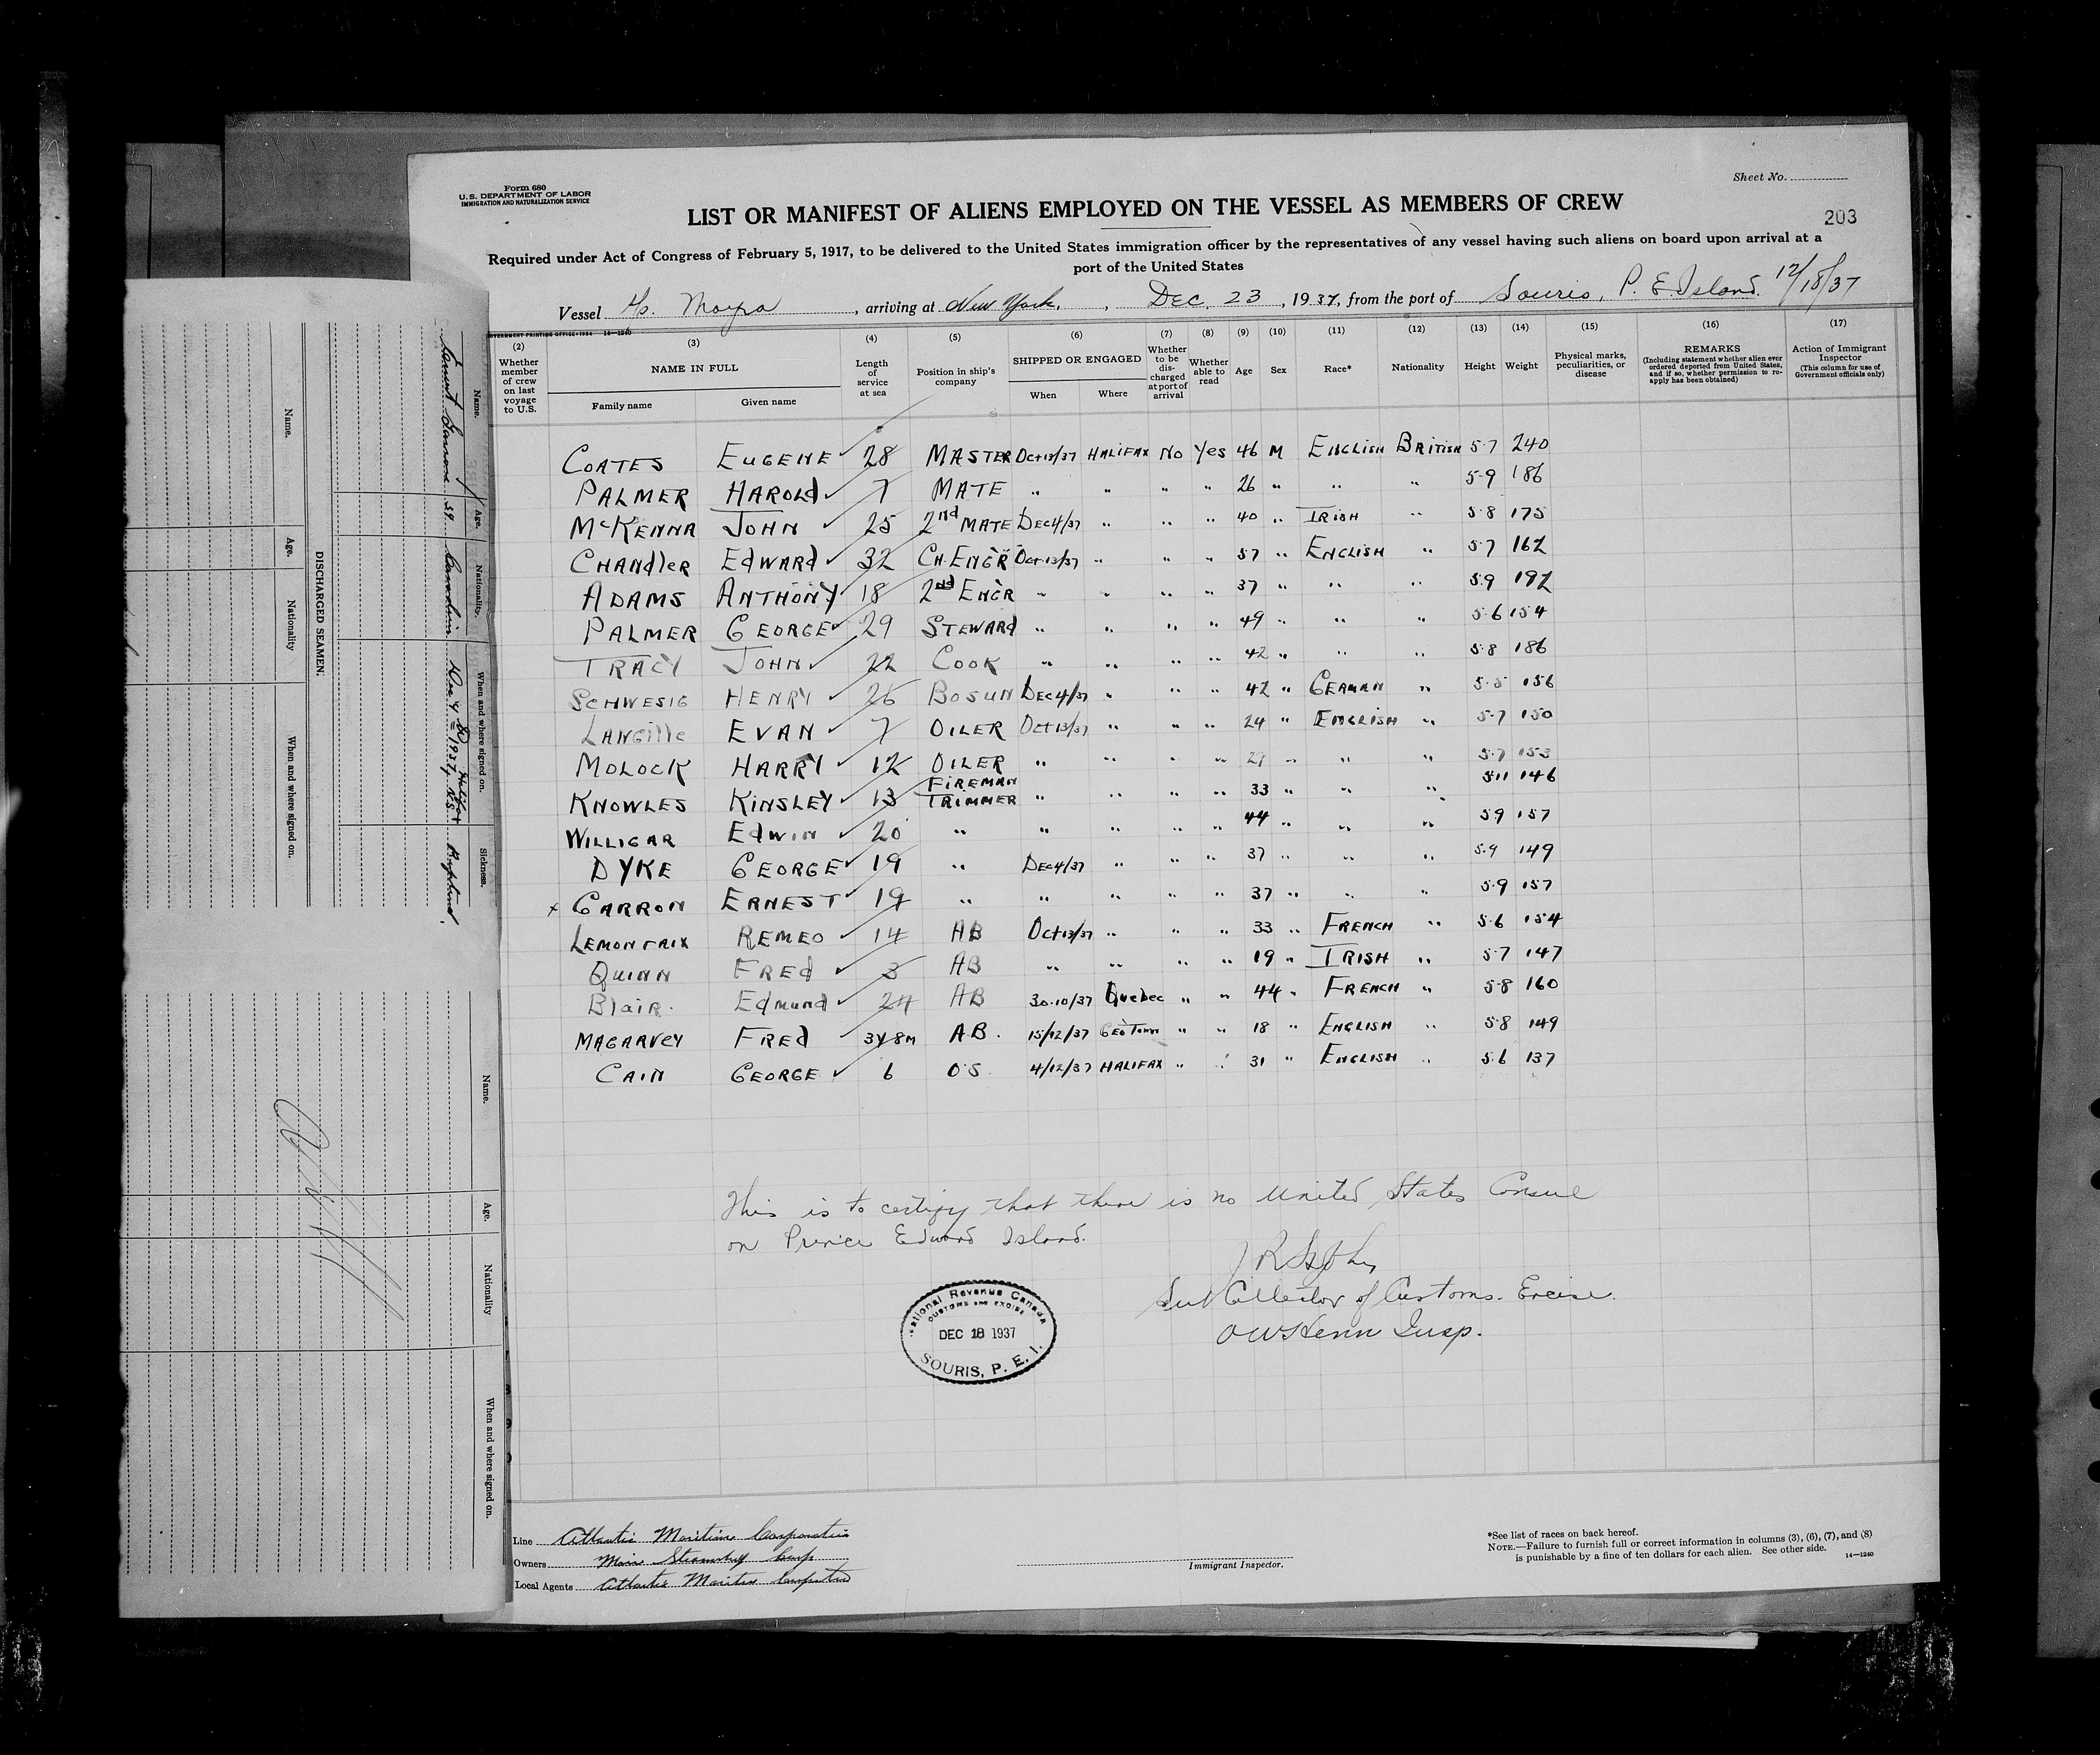 Form 680
U.S. DEPARTMENT OF LABOR
IMMIGRATION AND NATURALIZATION SERVICE
Sheet No.
LIST OR MANIFEST OF ALIENS EMPLOYED ON THE VESSEL AS MEMBERS OF CREW
203
Required under Act of Congress of February 5, 1917, to be delivered to the United States immigration officer by the representatives of any vessel having such aliens on board upon arrival at a
port of the United States
Vessel, arriving at New York, Dec 23, 1937, from the port of Souris, P. E. Island. 12/18/37
GOVERNMENT PRINTING OFFICE 14—1240
(2) Whether member of crew on last voyage to U.S.
(3) NAME IN FULL Family name Given name
(4) Length of service at sea
(5) Position in ship's company
(6) SHIPPED OR ENGAGED When Where
(7) Whether to be discharged at port of arrival
(8) Whether able to read
(9) Age
(10) Sex
(11) Race*
(12) Nationality
(13) Height
(14) Weight
(15) Physical marks, peculiarities, or disease
(16) REMARKS (Including statement whether alien ever ordered deported from United States, and if so, whether permission to reapply has been obtained)
(17) Action of Immigrant Inspector (This column for use of Government officials only)
COATES EUGENE 28 MASTER Oct 13/37 HALIFAX No Yes 46 M ENGLISH BRITISH 5-7 240
PALMER HAROLd 7 MATE " " " " 26 " " " 5-9 186
McKENNA JOHN 25 2nd MATE DEC 4/37 " " " 40 " IRISH " 5-8 175
CHANdlER EdWARd 32 CH. ENGR Oct 13/37 " " " 57 " ENGLISH " 5-7 162
ADAMS ANTHONY 18 2nd ENGR " " " " 37 " " " 5-9 192
PALMER GEORGE 29 STEWARd " " " " 49 " " " 5-6 154
TRACY JOHN 22 COOK " " " " 42 " " " 5-8 186
SCHWESIG HENRY 26 BOSUN DEC 4/37 " " " 42 " GERMAN " 5-5 156
LANGille EVAN 7 OILER Oct 13/37 " " " 24 " ENGLISH " 5-7 150
MOLOCK HARRY 12 OILER " " " " 29 " " " 5-7 153
KNOWLES KINSLEY 13 FIREMAN TRIMMER " " " " 33 " " " 5-11 146
WILLIGAR EdWIN 20 " " " " " 44 " " " 5-9 157
DYKE GEORGE 19 " DEC 4/37 " " " 37 " " " 5-9 149
x GARRON ERNEST 19 " " " " " 37 " " " 5-9 157
LEMONFAIX REMEO 14 AB Oct 13/37 " " " 33 " FRENCH " 5-6 154
QUINN FREd 3 AB " " " " 19 " IRISH " 5-7 147
Blair Edmund 24 AB 30.10/37 Quebec " " 44 " FRENCH " 5-8 160
MAGARVEY FREd 3Y 8m A.B. 15/12/37 GEOTOWN " " 18 " ENGLISH " 5-8 149
CAIN GEORGE 6 O.S. 4/12/37 HALIFAX " " 31 " ENGLISH " 5-6 137
This is to certify that there is no United States Consul
on Prince Edward Island.
Sub Collector of Customs. Excise.
Insp.
National Revenue Canada
CUSTOMS AND EXCISE
DEC 18 1937
SOURIS, P. E. I.
Line Atlantic Maritime Corporation
Owners Steamship Corp
Local Agents Atlantic Maritime Corporation
Immigrant Inspector.
*See list of races on back hereof.
NOTE.—Failure to furnish full or correct information in columns (3), (6), (7), and (8)
is punishable by a fine of ten dollars for each alien. See other side.
14—1240
Name. Age. Nationality. When and where signed on. Sickness.
DISCHARGED SEAMEN.
Name. Age. Nationality When and where signed on.
Name. Age. Nationality When and where signed on.